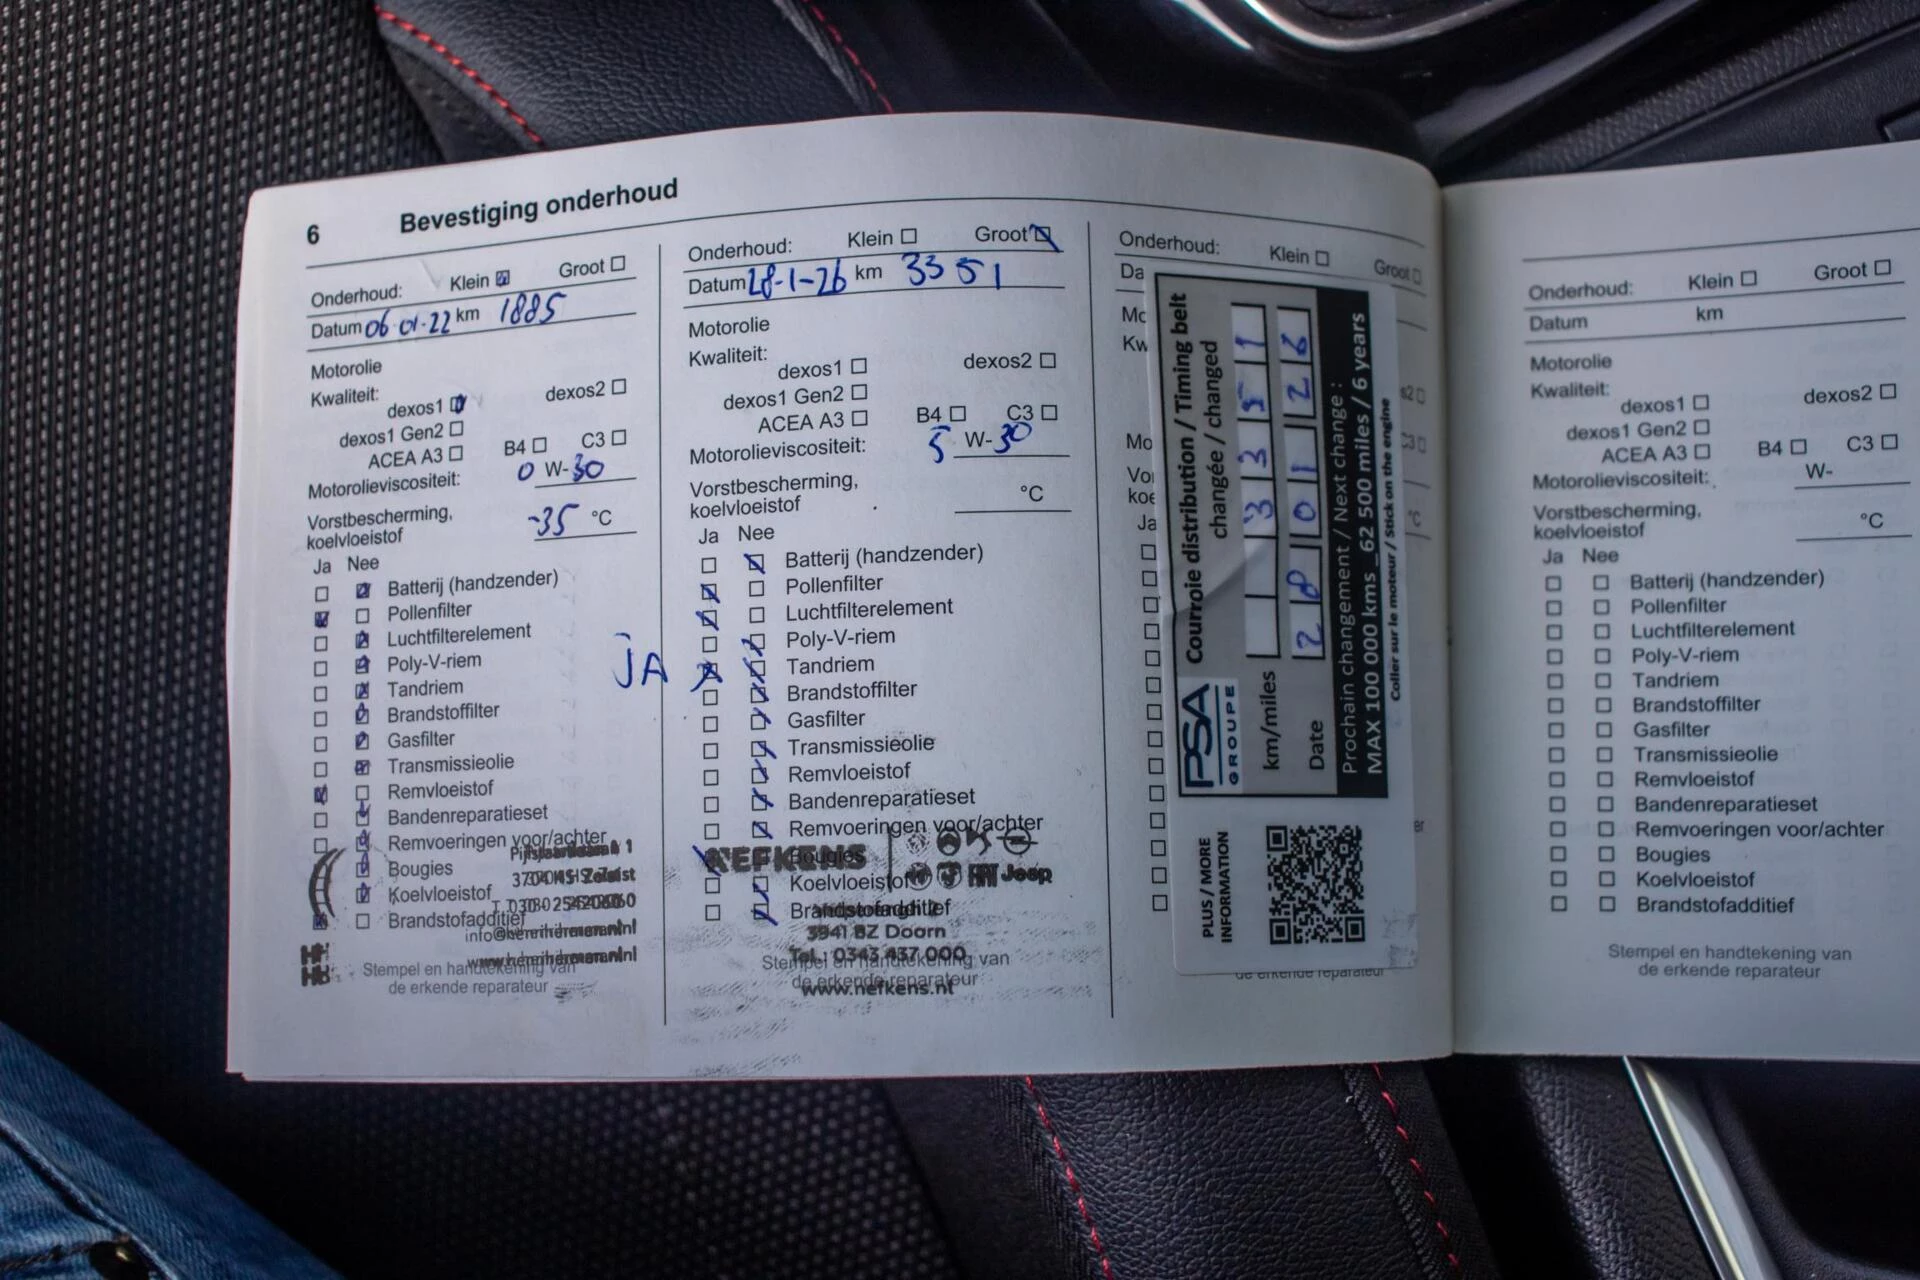 6 Bevestiging onderhoud
Onderhoud: Klein Groot
Datum 06-01-22 km 1885
Motorolie
Kwaliteit:
dexos1 dexos2
dexos1 Gen2
ACEA A3 B4 C3
Motorolieviscositeit: 0 W-30
Vorstbescherming,
koelvloeistof -35 °C
Ja Nee
Batterij (handzender)
Pollenfilter
Luchtfilterelement
Poly-V-riem
Tandriem
Brandstoffilter
Gasfilter
Transmissieolie
Remvloeistof
Bandenreparatieset
Remvoeringen voor/achter
Bougies
Koelvloeistof
Brandstofadditief
Stempel en handtekening van
de erkende reparateur
Onderhoud: Klein Groot
Datum 28-1-26 km 3351
Motorolie
Kwaliteit:
dexos1 dexos2
dexos1 Gen2
ACEA A3 B4 C3
Motorolieviscositeit: 5 W-30
Vorstbescherming,
koelvloeistof °C
Ja Nee
Batterij (handzender)
Pollenfilter
Luchtfilterelement
Poly-V-riem
JA Tandriem
Brandstoffilter
Gasfilter
Transmissieolie
Remvloeistof
Bandenreparatieset
Remvoeringen voor/achter
Bougies
NEFKENS
Jeep
Koelvloeistof
Brandstofadditief
3941 BZ Doorn
Tel.: 0343 437 000
Stempel en handtekening van
de erkende reparateur
www.nefkens.nl
Onderhoud: Klein Groot
Courroie distribution / Timing belt
changée / changed
km/miles 3351
Date 280126
Prochain changement / Next change :
MAX 100 000 kms_62 500 miles / 6 years
Coller sur le moteur / Stick on the engine
PSA
GROUPE
PLUS / MORE
INFORMATION
de erkende reparateur
Onderhoud: Klein Groot
Datum km
Motorolie
Kwaliteit:
dexos1 dexos2
dexos1 Gen2
ACEA A3 B4 C3
Motorolieviscositeit: W-
Vorstbescherming,
koelvloeistof °C
Ja Nee
Batterij (handzender)
Pollenfilter
Luchtfilterelement
Poly-V-riem
Tandriem
Brandstoffilter
Gasfilter
Transmissieolie
Remvloeistof
Bandenreparatieset
Remvoeringen voor/achter
Bougies
Koelvloeistof
Brandstofadditief
Stempel en handtekening van
de erkende reparateur